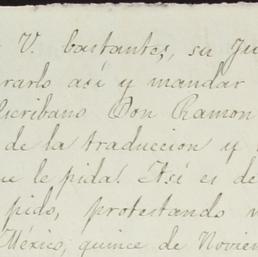 V. bastantes, su Ju
rarlo así y mandar
Escribano Don Ramon
de la traduccion y
ue le pida! Así es de
pido, protestando
México, quince de Noviem